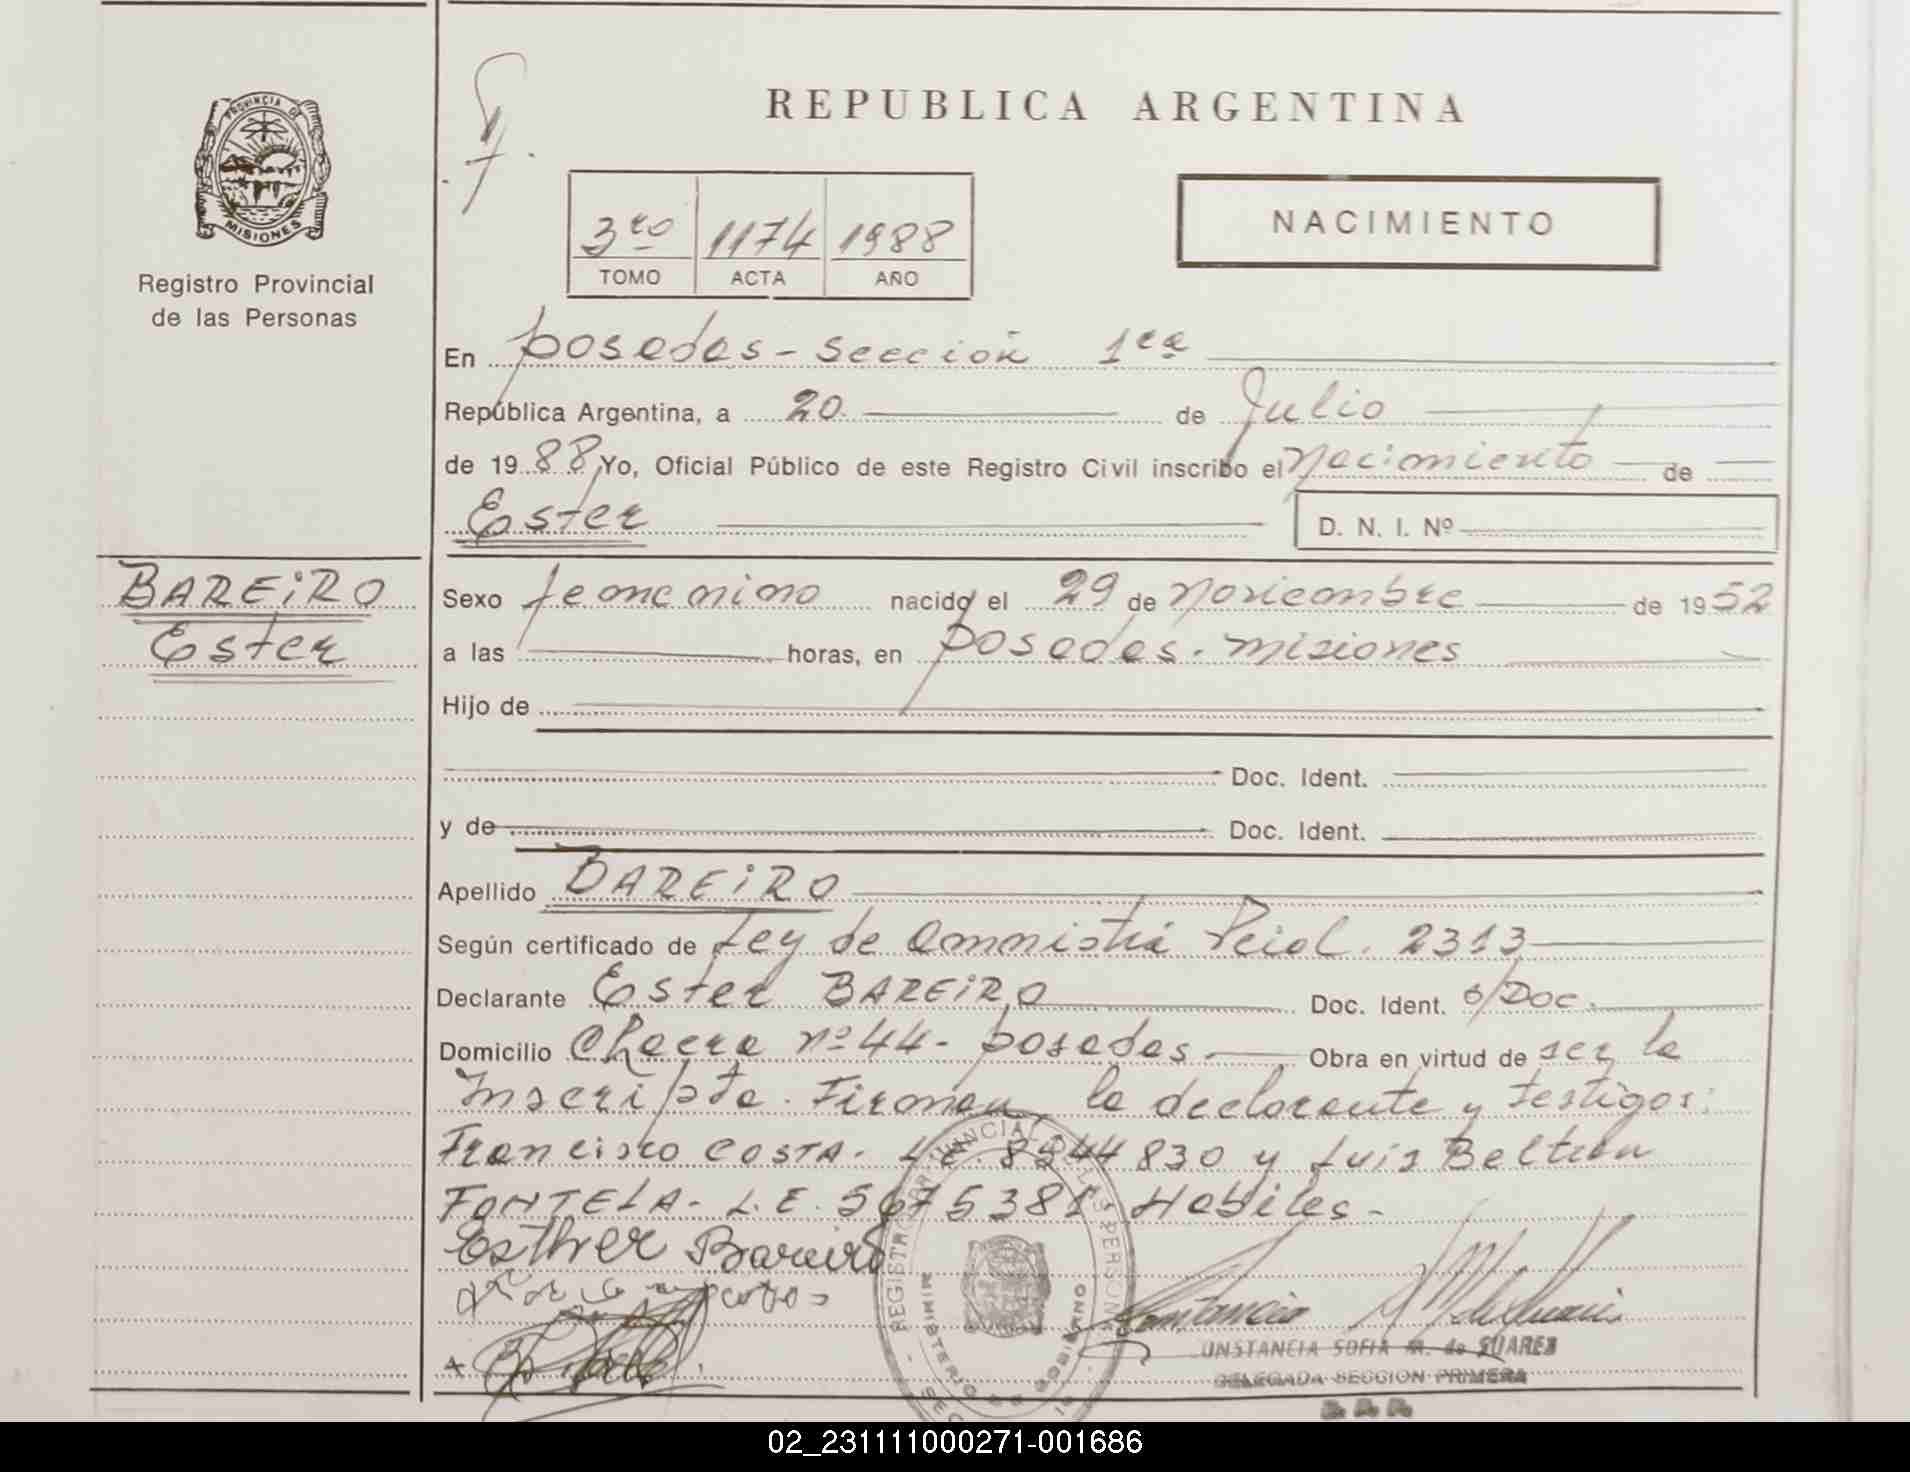 PROVINCIA DE
MISIONES
Registro Provincial
de las Personas
REPUBLICA ARGENTINA
3ro 1174 1988
TOMO ACTA AÑO
NACIMIENTO
En Posadas - Sección 1ra
República Argentina, a 20 de Julio
de 1988 Yo, Oficial Público de este Registro Civil inscribo el Nacimiento de
Ester D. N. I. Nº
BAREIRO
Ester
Sexo femenino nacido el 29 de Noviembre de 1952
a las horas, en Posadas. Misiones
Hijo de
Doc. Ident.
y de Doc. Ident.
Apellido BAREIRO
Según certificado de Ley de Amnistía Pcial. 2313
Declarante Ester BAREIRO Doc. Ident. s/Doc.
Domicilio Chacra nº 44 - Posadas Obra en virtud de ser la
Inscripta. Firman, la declarante y testigos:
Francisco COSTA. L.E. 8544830 y Luis Beltrán
FONTELA - L.E. 5675381. Hábiles -
Esther Bareiro
REGISTRO PROVINCIAL DE LAS PERSONAS
MINISTERIO DE GOBIERNO
Constancia
CONSTANCIA SOFIA M. de SUAREZ
DELEGADA SECCION PRIMERA
R. P. P.
02_231111000271-001686